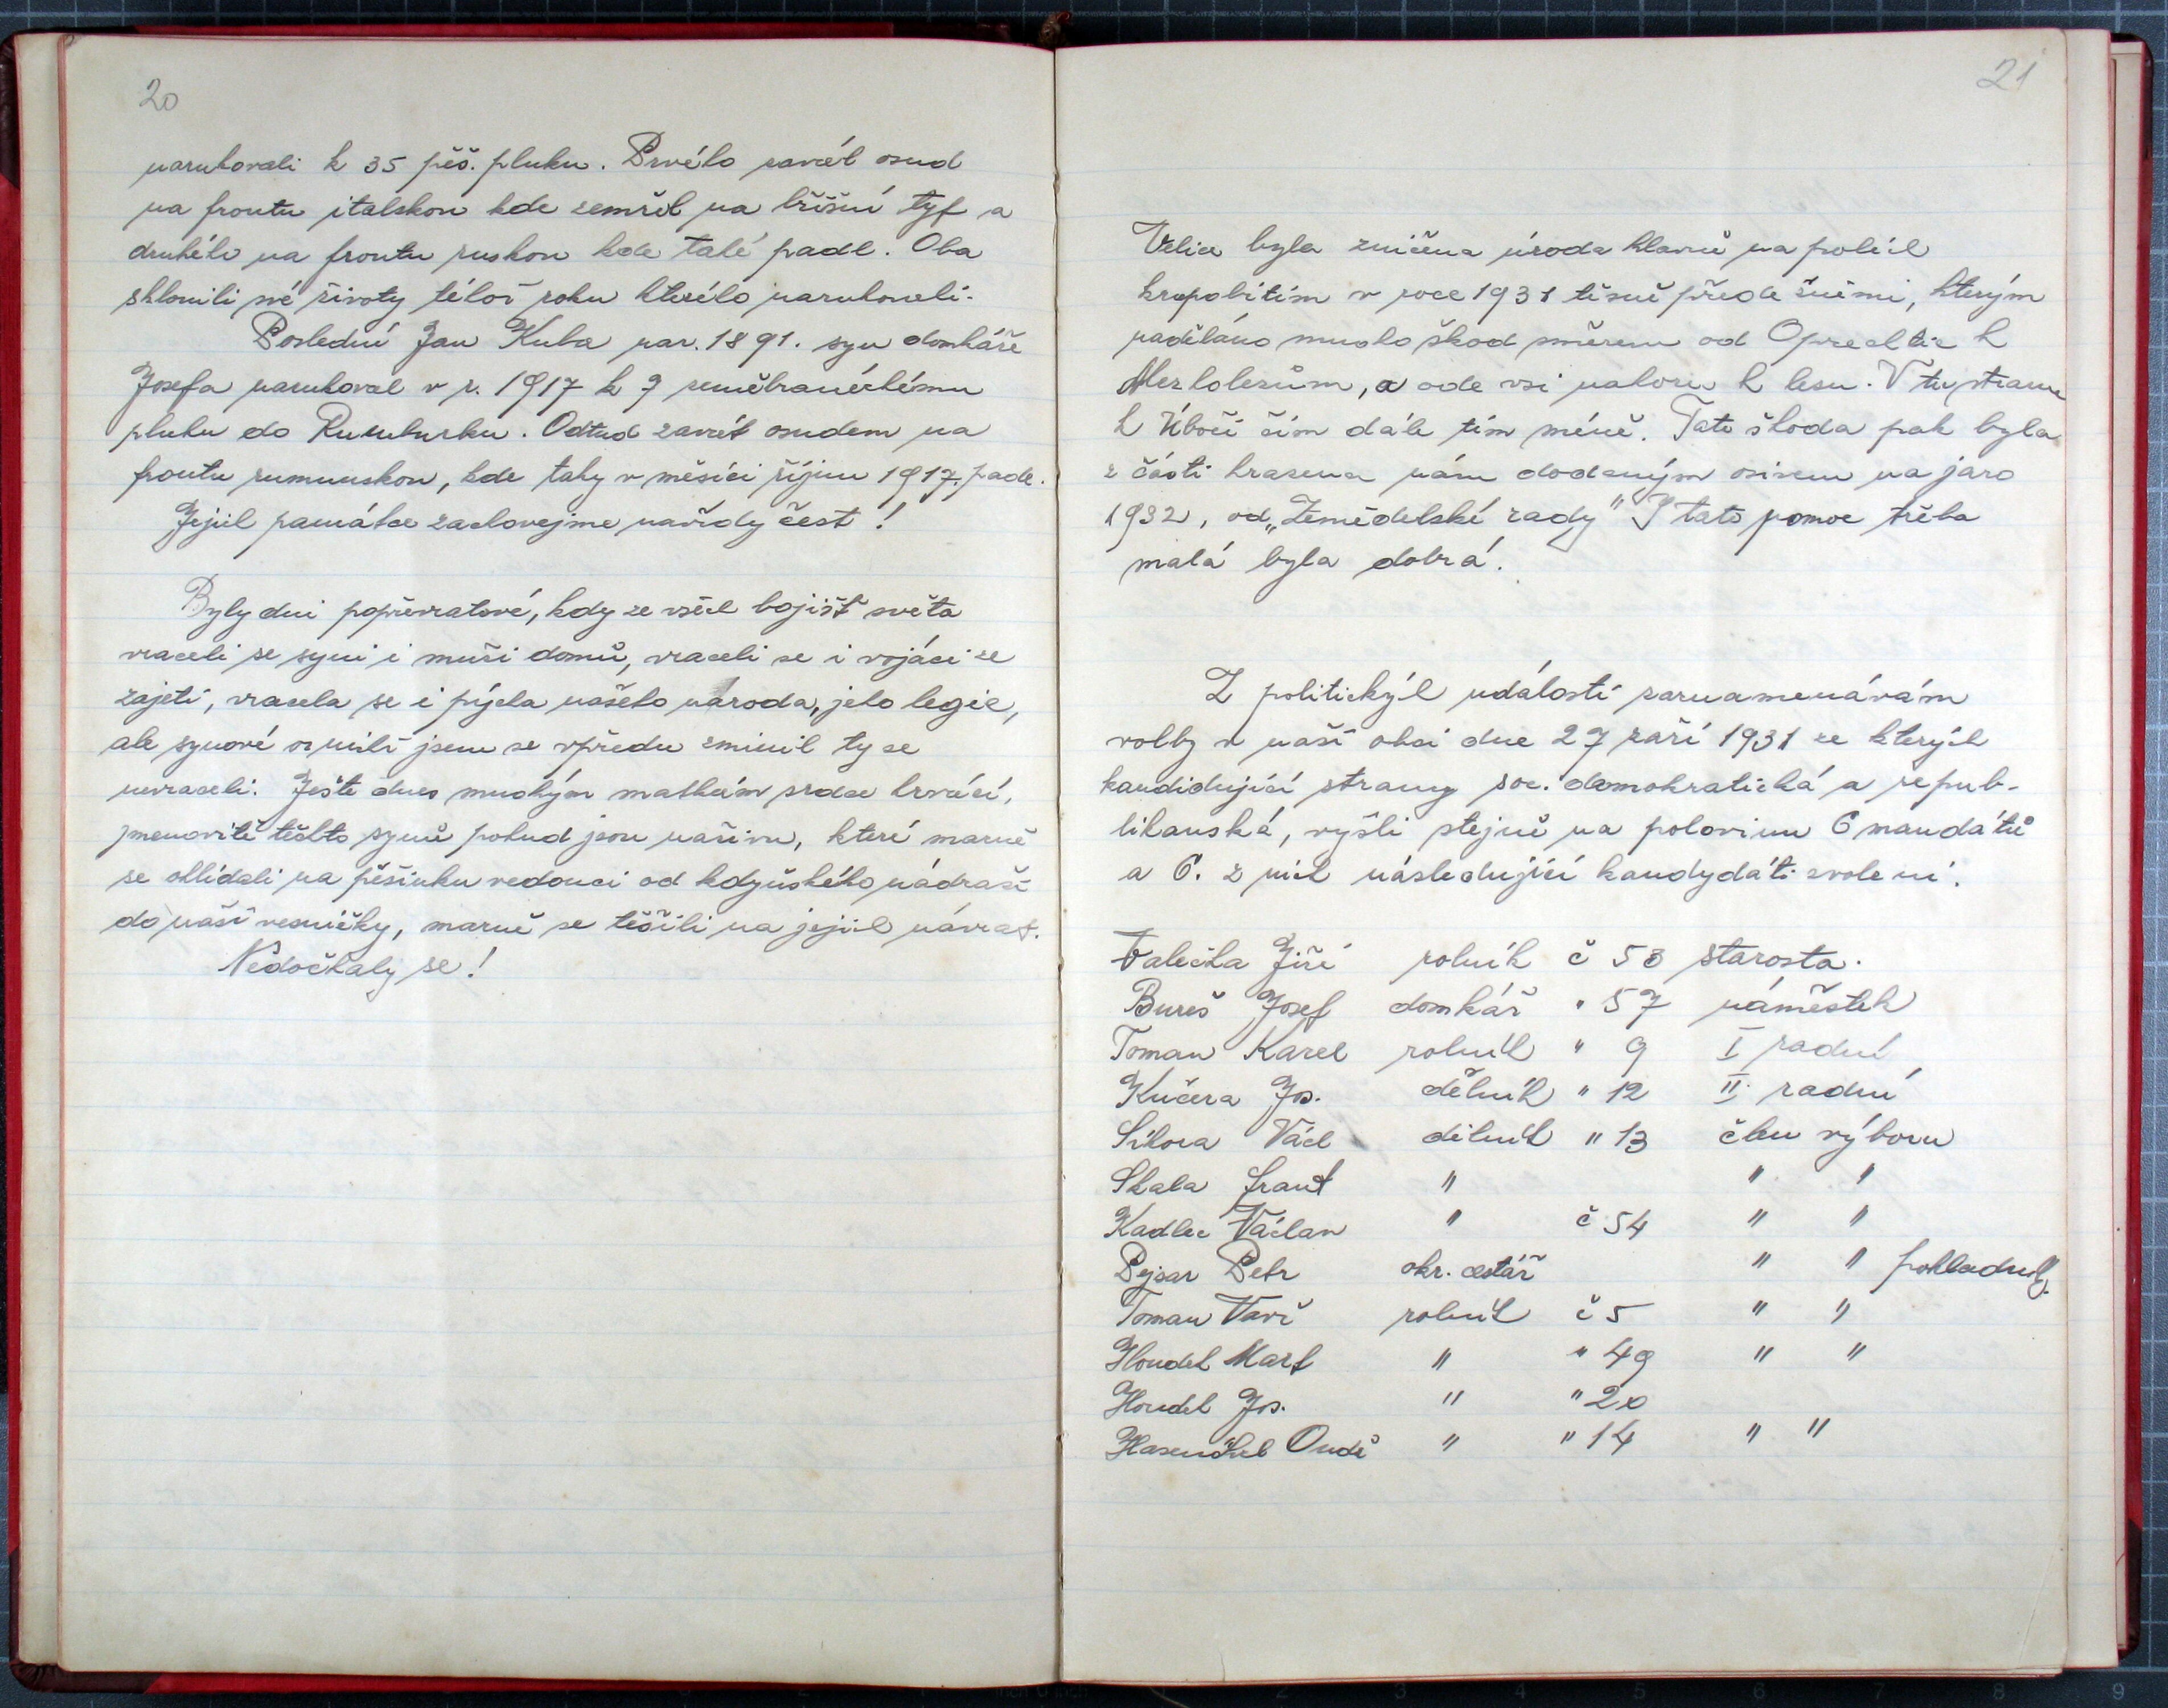 20
narukovali k 35 pěš. pluku. Prvého zavál osud
na frontu italskou kde zemřel na břišní tyf a
druhého na frontu ruskou kde také padl. Oba
sklonili své životy téhož roku kterého narukovali.
Poslední Jan Kuba nar. 1891. syn domkáře
Josefa narukoval v r. 1917 k 7 zeměbraneckému
pluku do Rumburku. Odtud zavát osudem na
frontu rumunskou, kde taky v měsíci říjnu 1917. padl.
Jejich památce zachovejme navždy čest!
Byly dni popřevratové, kdy ze všech bojišť světa
vraceli se syni i muži domů, vraceli se i vojáci ze
zajetí, vracela se i pýcha našeho národa, jeho legie,
ale synové o nichž jsem se vpředu zmínil ty se
nevraceli. Ještě dnes mnohým matkám srdce krvácí,
jmenovitě těchto synů pokud jsou naživu, které marně
se ohlídali na pěšinku vedoucí od kdyňského nádraží
do naší vesničky, marně se těšili na jejich návrat.
Nedočkaly se!
21
Velice byla zničena úroda hlavně na polích
krupobitím v roce 1931 těsně přede žněmi, kterým
naděláno mnoho škod směrem od Oprechtic k
Mezholezům, a ode vsi nahoru k lesu. V tu stranu
k Úboči čím dále tím méně. Tato škoda pak byla
z části hrazena nám dodaným osivem na jaro
1932, od „Zemědělské rady" I tato pomoc třeba
malá byla dobrá.
Z politických událostí zaznamenávám
volby v naší obci dne 27 září 1931 ze kterých
kandidující strany soc. demokratická a repub-
likánská, vyšli stejně na polovinu 6 mandátů
a 6. z nich následující kandydáti zvoleni.
Valečka Jiří rolník č 53 starosta.
Bureš Josef domkář " 57 náměstek
Toman Karel rolník " 9 I radní
Kučera Jos. dělník " 12 II. radní
Sikora Václ dělník " 13 člen výboru
Skala Frant " " "
Kadlec Václav " č 54 " "
Pejsar Petr okr. cestář " " pokladník.
Toman Vavř rolník č 5 " "
Houdek Mart " " 49 " "
Houdek Jos. " " 20
Ondř " " 14 " "